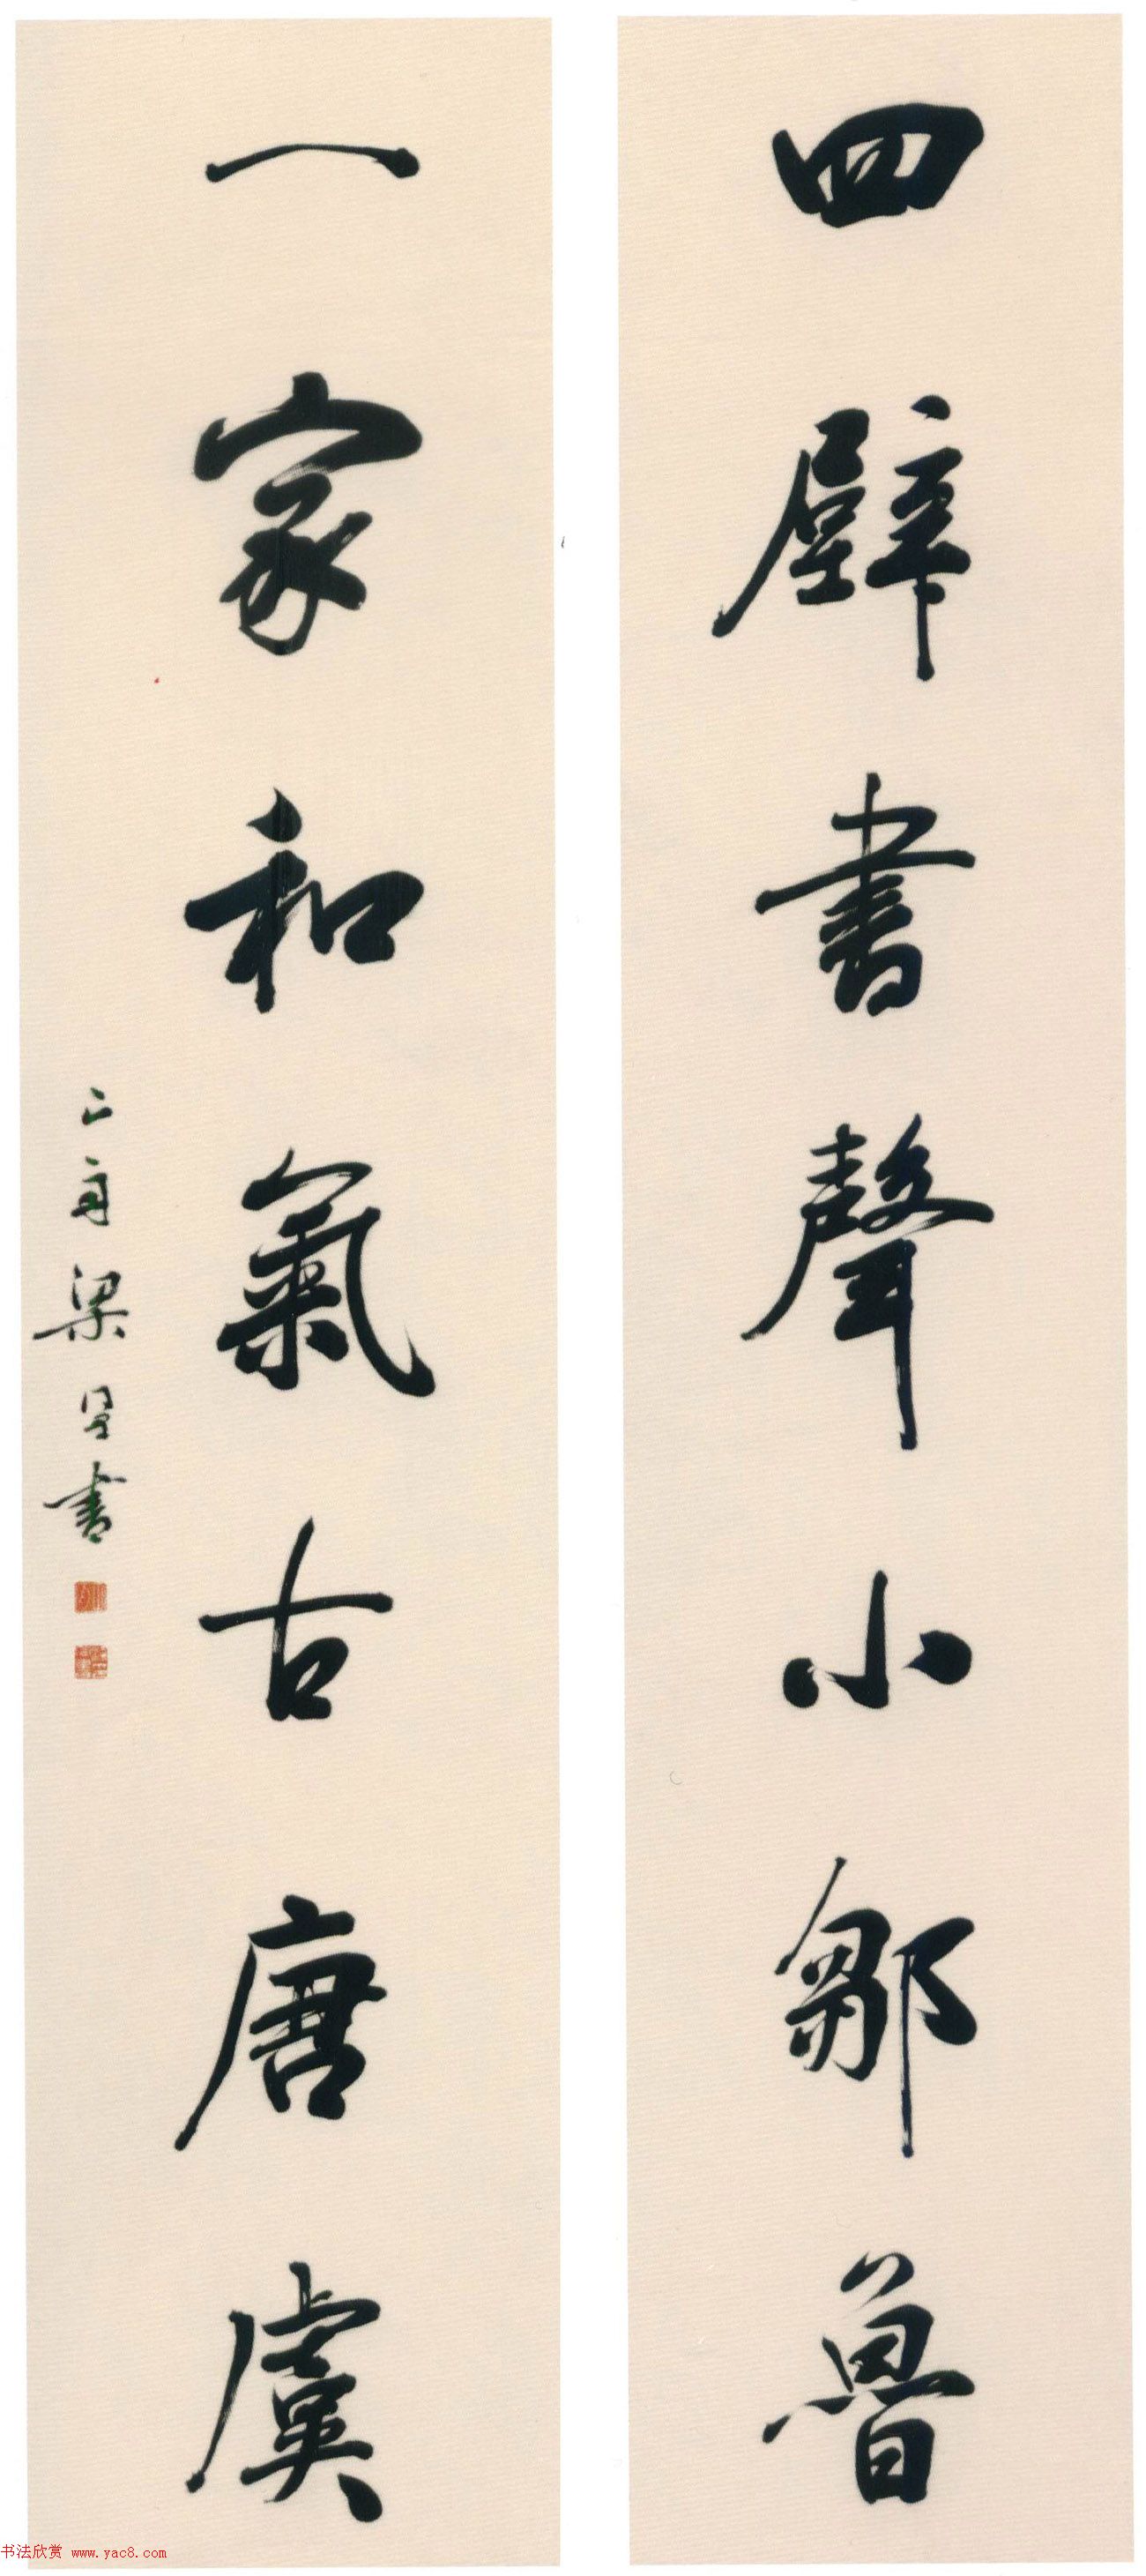 四壁書聲小鄒魯
一家和氣古唐虞
梁
書
书法欣赏 www.yac8.com